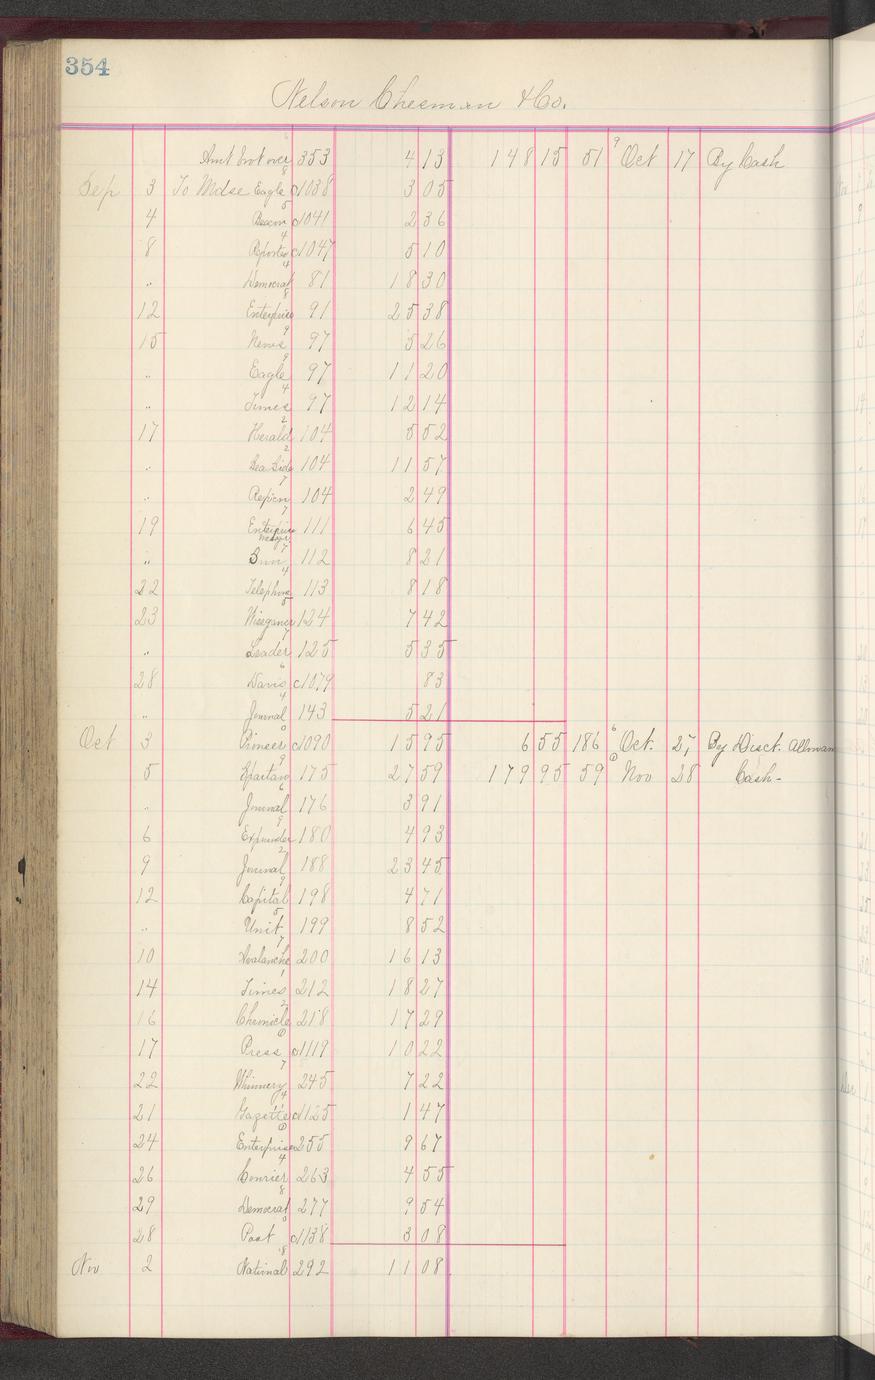 354
Nelson Chesman & Co.
Amt brot over 353 4 13 148 15 51 9 Oct 17 By Cash
Sep 3 To Mdse Eagle 8 c1038 3 05
4 Beacon 5 c1041 2 36
8 Reporter 4 c1047 5 10
" Democrat 4 81 18 30
12 Enterprise 8 91 25 38
15 News 9 97 5 26
" Eagle 9 97 11 20
" Times 4 97 12 14
17 Herald 2 104 5 52
" Sea Side 2 104 11 57
" Repcn 7 104 2 49
19 Enterprise 7 111 6 45
" Sun 7 112 8 21
22 Telephone 4 113 8 18
23 5 124 7 42
" Leader 7 125 5 35
28 Davis 6 c1079 83
" Journal 4 143 5 21
Oct 3 Pioneer 0 c1090 15 95 6 55 186 6 Oct. 27 By Disct. Allman
5 Spartan 9 175 27 59 179 95 59 Nov 28 Cash-
" Journal 6 176 3 91
6 Expounder 9 180 4 93
9 Journal 2 188 23 45
12 Capital 9 198 4 71
" Unit 5 199 8 52
10 Avalanche 7 200 16 13
14 Times 1 212 18 27
16 Chronicle 2 218 17 29
17 Press c1119 10 22
22 Whinnery 7 245 7 22
21 Gazette 4 c1125 1 47
24 Enterprise 255 9 67
26 Courier 4 263 4 55
29 Democrat 8 277 9 54
28 Post 0 c1138 3 08
Nov 2 National 8 292 11 08